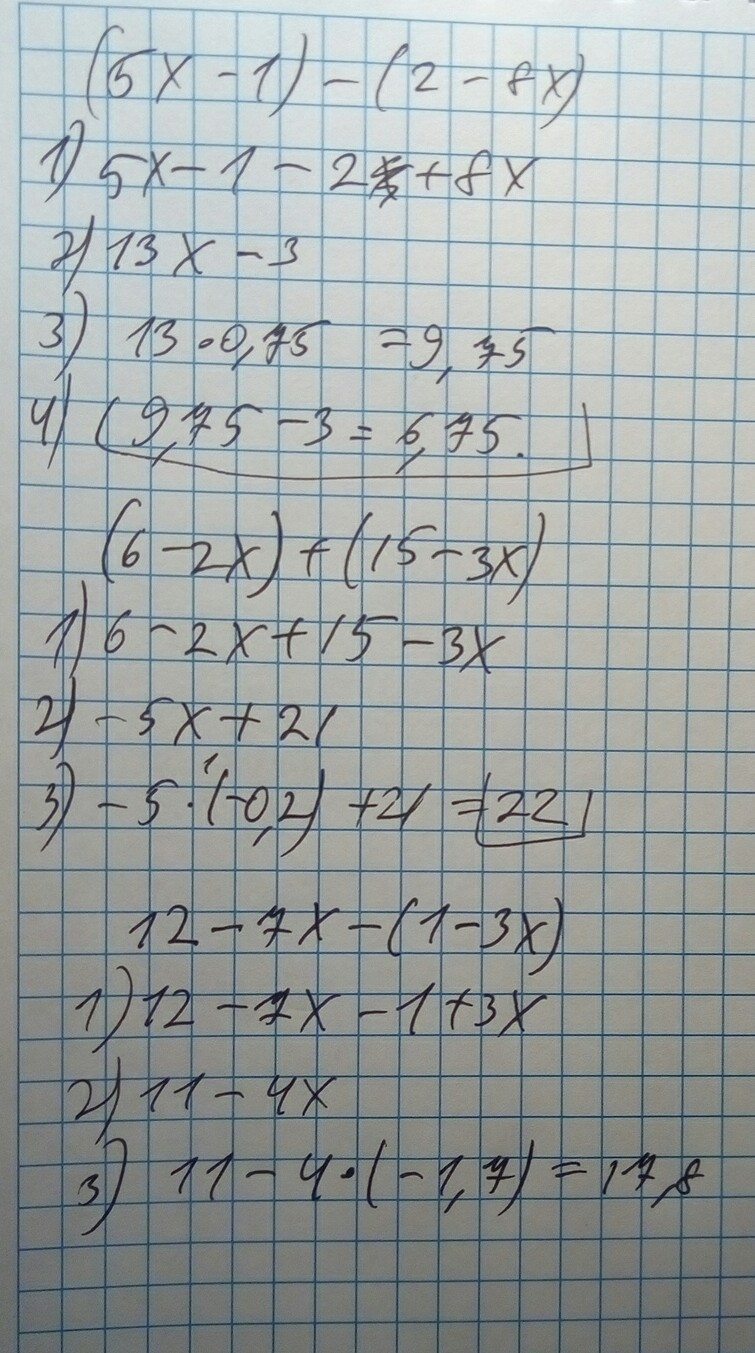 (5x - 1) - (2 - 8x)
1) 5x - 1 - 2 + 8x
2) 13x - 3
3) 13 · 0,75 = 9,75
4) 9,75 - 3 = 6,75.
(6 - 2x) + (15 - 3x)
1) 6 - 2x + 15 - 3x
2) - 5x + 21
3) - 5 · (-0,2) + 21 = 22
12 - 7x - (1 - 3x)
1) 12 - 7x - 1 + 3x
2) 11 - 4x
3) 11 - 4 · (-1,7) = 17,8